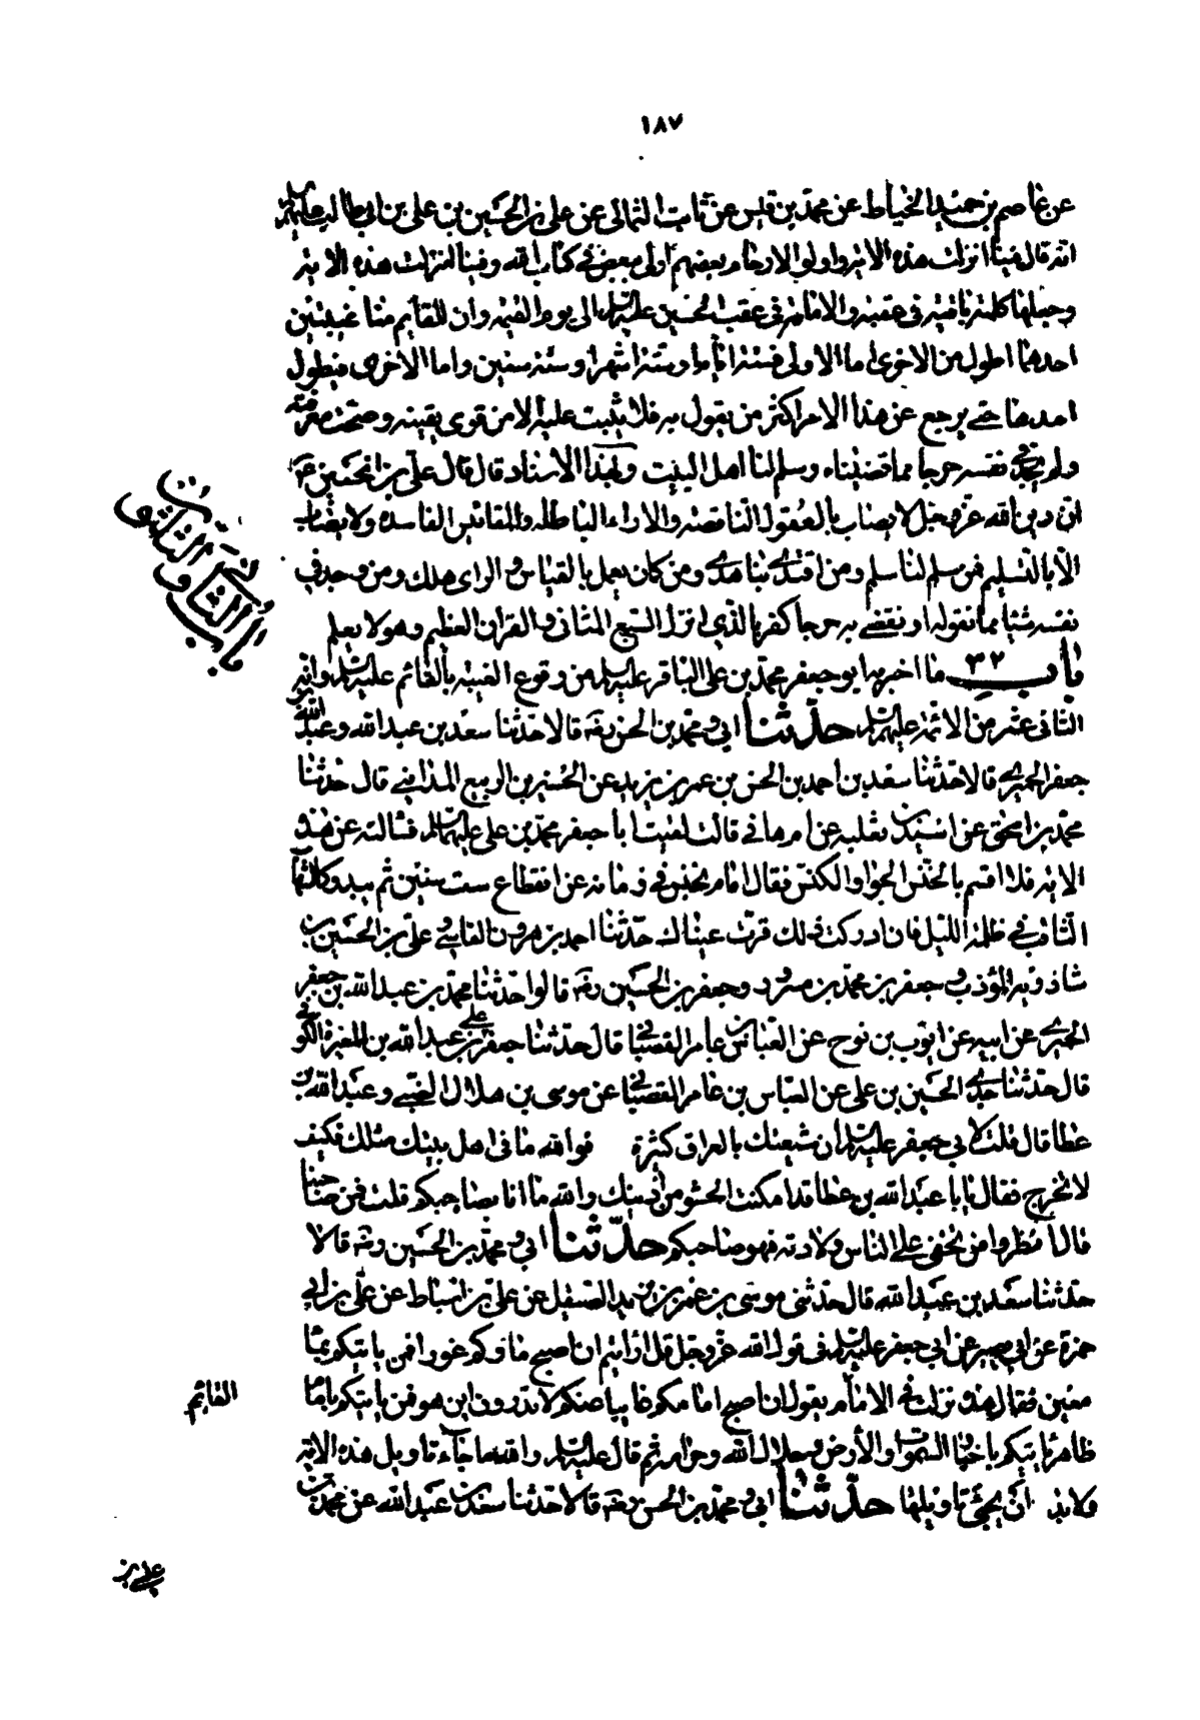 ١٨٧
عن عاصم بن حميد الخياط عن محمد بن قيس عن ثابت الثمالى عن على بن الحسين بن على بن ابى طالب عليهم السلم
انه قال فينا انزلت هذه الاية واولوا الارحام بعضهم اولى ببعض في كتاب الله وفينا انزلت هذه الاية
وجعلها كلمة باقية فى عقبه والامامة فى عقب الحسين عليه السلم الى يوم القيمة وان للقائم منا غيبتين
احدهما اطول من الاخرى اما الاولى فستة ايام او ستة اشهر او ستة سنين واما الاخرى فيطول
امدها حتى يرجع عن هذا الامر اكثر من يقول به فلا يثبت عليه الا من قوى يقينه وصحت معرفته
ولم يجد في نفسه حرجا مما قضيناه وسلم لنا اهل البيت وبهذا الاسناد قال قال على بن الحسين ع
ان دين الله عز وجل لا يصاب بالعقول الناقصة والاراء الباطلة والمقائيس الفاسدة ولا يصاب
الا بالتسليم فمن سلم لنا سلم ومن اقتدى بنا هدى ومن كان يعمل بالقياس والراى هلك ومن وجد فى
نفسه شيئا مما نقوله او نقضى به حرجا كفر بالذي انزل السبع المثانى والقران العظيم وهو لا يعلم
باب ٣٢ ما اخبر به ابو جعفر محمد بن على الباقر عليه السلم من وقوع الغيبة بالقائم عليه السلم وانه هو
الثانى عشر من الائمة عليهم السلم حدثنا ابي ومحمد بن الحسن رضه قالا حدثنا سعد بن عبد الله وعبد الله
جعفر الحميرى قالا حدثنا سعد بن احمد بن الحسن بن عمر بن يزيد عن الحسين بن الربيع المدائني قال حدثنا
محمد بن اسحق عن اسيد بن ثعلبه عن ام هانى قالت لقيت ابا جعفر محمد بن على عليهما السلم فسالته عن هذه
الاية فلا اقسم بالخنس الجوار الكنس فقال امام يخنس في زمانه عن انقطاع ست سنين ثم يبدو كالشهاب
الثاقب في ظلمة الليل فان ادركت ذلك قرت عيناك حدثنا احمد بن هرون الفامى وعلى بن الحسين بن
شاذويه المؤدب وجعفر بن محمد بن مسرور وجعفر بن الحسين رضه قالوا حدثنا محمد بن عبد الله بن جعفر
الحميرى عن ابيه عن ايوب بن نوح عن العباس بن عامر القصبانى قال حدثنا جعفر بن على بن عبد الله بن المغيرة الكوفي
قال حدثنا جدى الحسين بن على عن العباس بن عامر القصبانى عن موسى بن هلال الضبى وعبد الله بن
عطا قال قلت لابي جعفر عليه السلم ان شيعتك بالعراق كثيرة فوالله ما فى اهل بيتك مثلك فكيف
لا تخرج فقال يا با عبد الله بن عطا قد امكنت الحشو من اذنيك والله ما انا بصاحبكم قلت فمن صاحبنا
قال انظروا من تخفى على الناس ولادته فهو صاحبكم حدثنا ابي ومحمد بن الحسين رضه قالا
حدثنا سعد بن عبد الله قال حدثنى موسى بن عمر بن يزيد الصيقل عن على بن اسباط عن على بن ابي
حمزة عن ابي بصير عن ابي جعفر عليه السلم فى قول الله عز وجل قل ارايتم ان اصبح ماؤكم غورا فمن ياتيكم بماء
معين فقال هذه نزلت في الامام يقول ان اصبح امامكم غايبا عنكم لا تدرون اين هو فمن ياتيكم بامام
ظاهر ياتيكم باخبار السموات والأرض وحلال الله وحرامه ثم قال عليه السلم والله ما جاء تاويل هذه الاية
ولابد ان يجئ تاويلها حدثنا ابي ومحمد بن الحسن رضه قالا حدثنا سعد بن عبد الله عن محمد بن
القايم
على بن